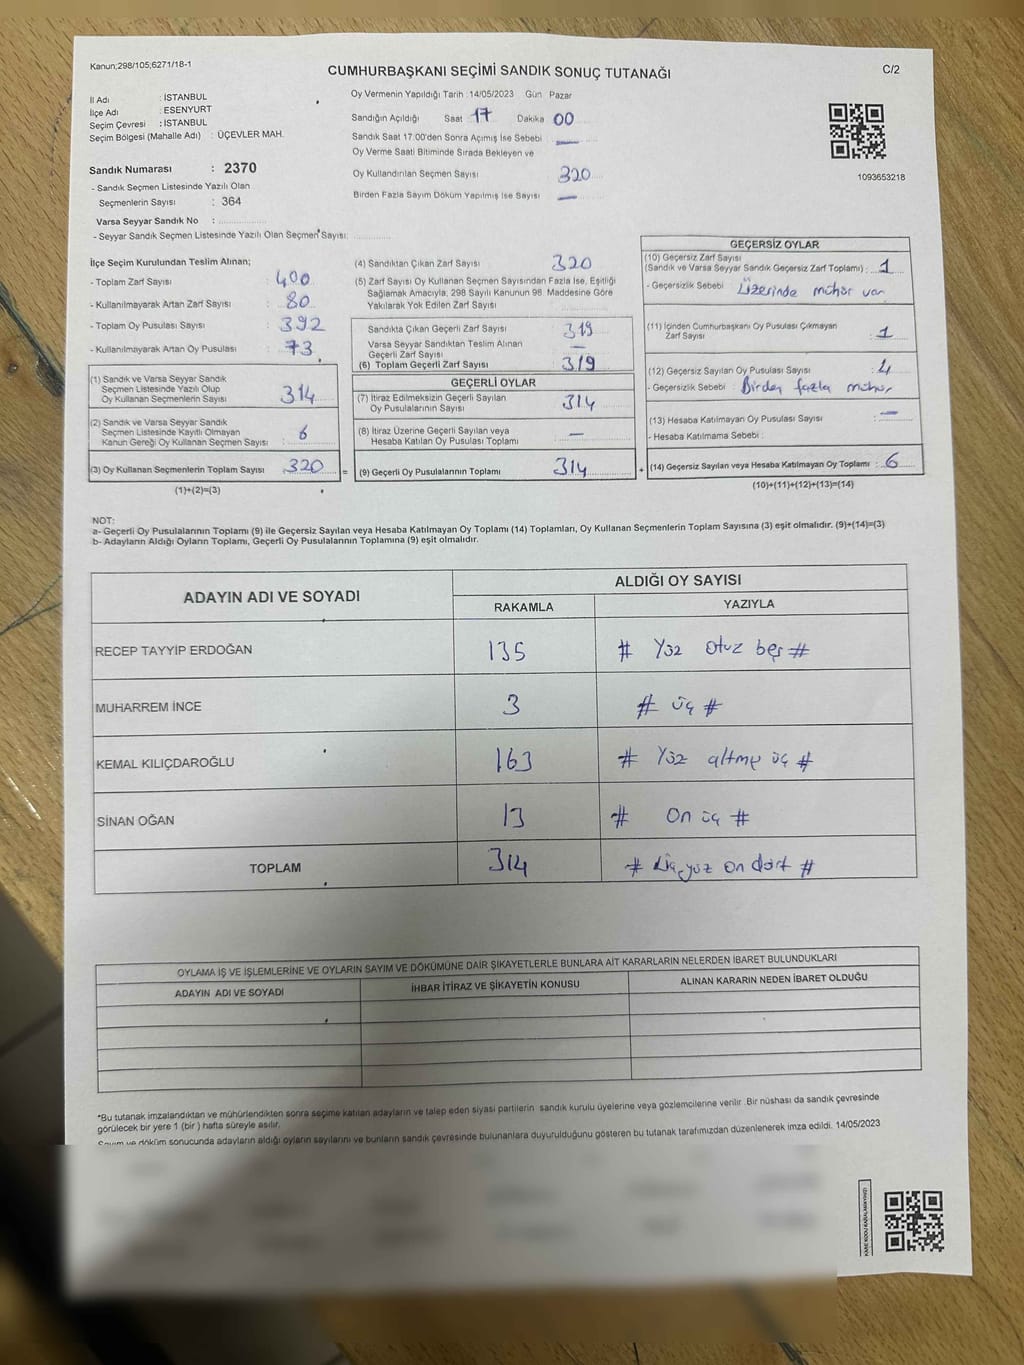 Kanun;298/105;6271/18-1
CUMHURBAŞKANI SEÇİMİ SANDIK SONUÇ TUTANAĞI
C/2
İl Adı : İSTANBUL
İlçe Adı : ESENYURT
Seçim Çevresi : İSTANBUL
Seçim Bölgesi (Mahalle Adı) : ÜÇEVLER MAH.
Sandık Numarası : 2370
- Sandık Seçmen Listesinde Yazılı Olan
Seçmenlerin Sayısı : 364
Varsa Seyyar Sandık No :
- Seyyar Sandık Seçmen Listesinde Yazılı Olan Seçmen Sayısı:
Oy Vermenin Yapıldığı Tarih :14/05/2023 Gün Pazar
Sandığın Açıldığı Saat 17 Dakika 00
Sandık Saat 17:00'den Sonra Açılmış İse Sebebi —
Oy Verme Saati Bitiminde Sırada Bekleyen ve
Oy Kullandırılan Seçmen Sayısı 320
Birden Fazla Sayım Döküm Yapılmış İse Sayısı —
1093653218
İlçe Seçim Kurulundan Teslim Alınan;
- Toplam Zarf Sayısı : 400
- Kullanılmayarak Artan Zarf Sayısı : 80
- Toplam Oy Pusulası Sayısı : 392
- Kullanılmayarak Artan Oy Pusulası : 73
(1) Sandık ve Varsa Seyyar Sandık
Seçmen Listesinde Yazılı Olup
Oy Kullanan Seçmenlerin Sayısı : 314
(2) Sandık ve Varsa Seyyar Sandık
Seçmen Listesinde Kayıtlı Olmayan
Kanun Gereği Oy Kullanan Seçmen Sayısı : 6
(3) Oy Kullanan Seçmenlerin Toplam Sayısı : 320 =
(1)+(2)=(3)
(4) Sandıktan Çıkan Zarf Sayısı 320
(5) Zarf Sayısı Oy Kullanan Seçmen Sayısından Fazla İse, Eşitliği
Sağlamak Amacıyla, 298 Sayılı Kanunun 98. Maddesine Göre
Yakılarak Yok Edilen Zarf Sayısı
Sandıkta Çıkan Geçerli Zarf Sayısı 319
Varsa Seyyar Sandıktan Teslim Alınan
Geçerli Zarf Sayısı —
(6) Toplam Geçerli Zarf Sayısı 319
GEÇERLİ OYLAR
(7) İtiraz Edilmeksizin Geçerli Sayılan
Oy Pusulalarının Sayısı 314
(8) İtiraz Üzerine Geçerli Sayılan veya
Hesaba Katılan Oy Pusulası Toplamı —
(9) Geçerli Oy Pusulalarının Toplamı 314 +
GEÇERSİZ OYLAR
(10) Geçersiz Zarf Sayısı
(Sandık ve Varsa Seyyar Sandık Geçersiz Zarf Toplamı) : 1
- Geçersizlik Sebebi : Üzerinde mühür var
(11) İçinden Cumhurbaşkanı Oy Pusulası Çıkmayan
Zarf Sayısı : 1
(12) Geçersiz Sayılan Oy Pusulası Sayısı : 4
- Geçersizlik Sebebi : Birden fazla mühür
(13) Hesaba Katılmayan Oy Pusulası Sayısı : —
- Hesaba Katılmama Sebebi :
(14) Geçersiz Sayılan veya Hesaba Katılmayan Oy Toplamı : 6
(10)+(11)+(12)+(13)=(14)
NOT:
a- Geçerli Oy Pusulalarının Toplamı (9) ile Geçersiz Sayılan veya Hesaba Katılmayan Oy Toplamı (14) Toplamları, Oy Kullanan Seçmenlerin Toplam Sayısına (3) eşit olmalıdır. (9)+(14)=(3)
b- Adayların Aldığı Oyların Toplamı, Geçerli Oy Pusulalarının Toplamına (9) eşit olmalıdır.
ADAYIN ADI VE SOYADI ALDIĞI OY SAYISI
RAKAMLA YAZIYLA
RECEP TAYYİP ERDOĞAN 135 # Yüz otuz beş #
MUHARREM İNCE 3 # üç #
KEMAL KILIÇDAROĞLU 163 # Yüz altmış üç #
SİNAN OĞAN 13 # On üç #
TOPLAM 314 # Üçyüz on dört #
OYLAMA İŞ VE İŞLEMLERİNE VE OYLARIN SAYIM VE DÖKÜMÜNE DAİR ŞİKAYETLERLE BUNLARA AİT KARARLARIN NELERDEN İBARET BULUNDUKLARI
ADAYIN ADI VE SOYADI İHBAR İTİRAZ VE ŞİKAYETİN KONUSU ALINAN KARARIN NEDEN İBARET OLDUĞU
*Bu tutanak imzalandıktan ve mühürlendikten sonra seçime katılan adayların ve talep eden siyasi partilerin sandık kurulu üyelerine veya gözlemcilerine verilir .Bir nüshası da sandık çevresinde
görülecek bir yere 1 (bir ) hafta süreyle asılır.
Sayım ve döküm sonucunda adayların aldığı oyların sayılarını ve bunların sandık çevresinde bulunanlara duyurulduğunu gösteren bu tutanak tarafımızdan düzenlenerek imza edildi. 14/05/2023